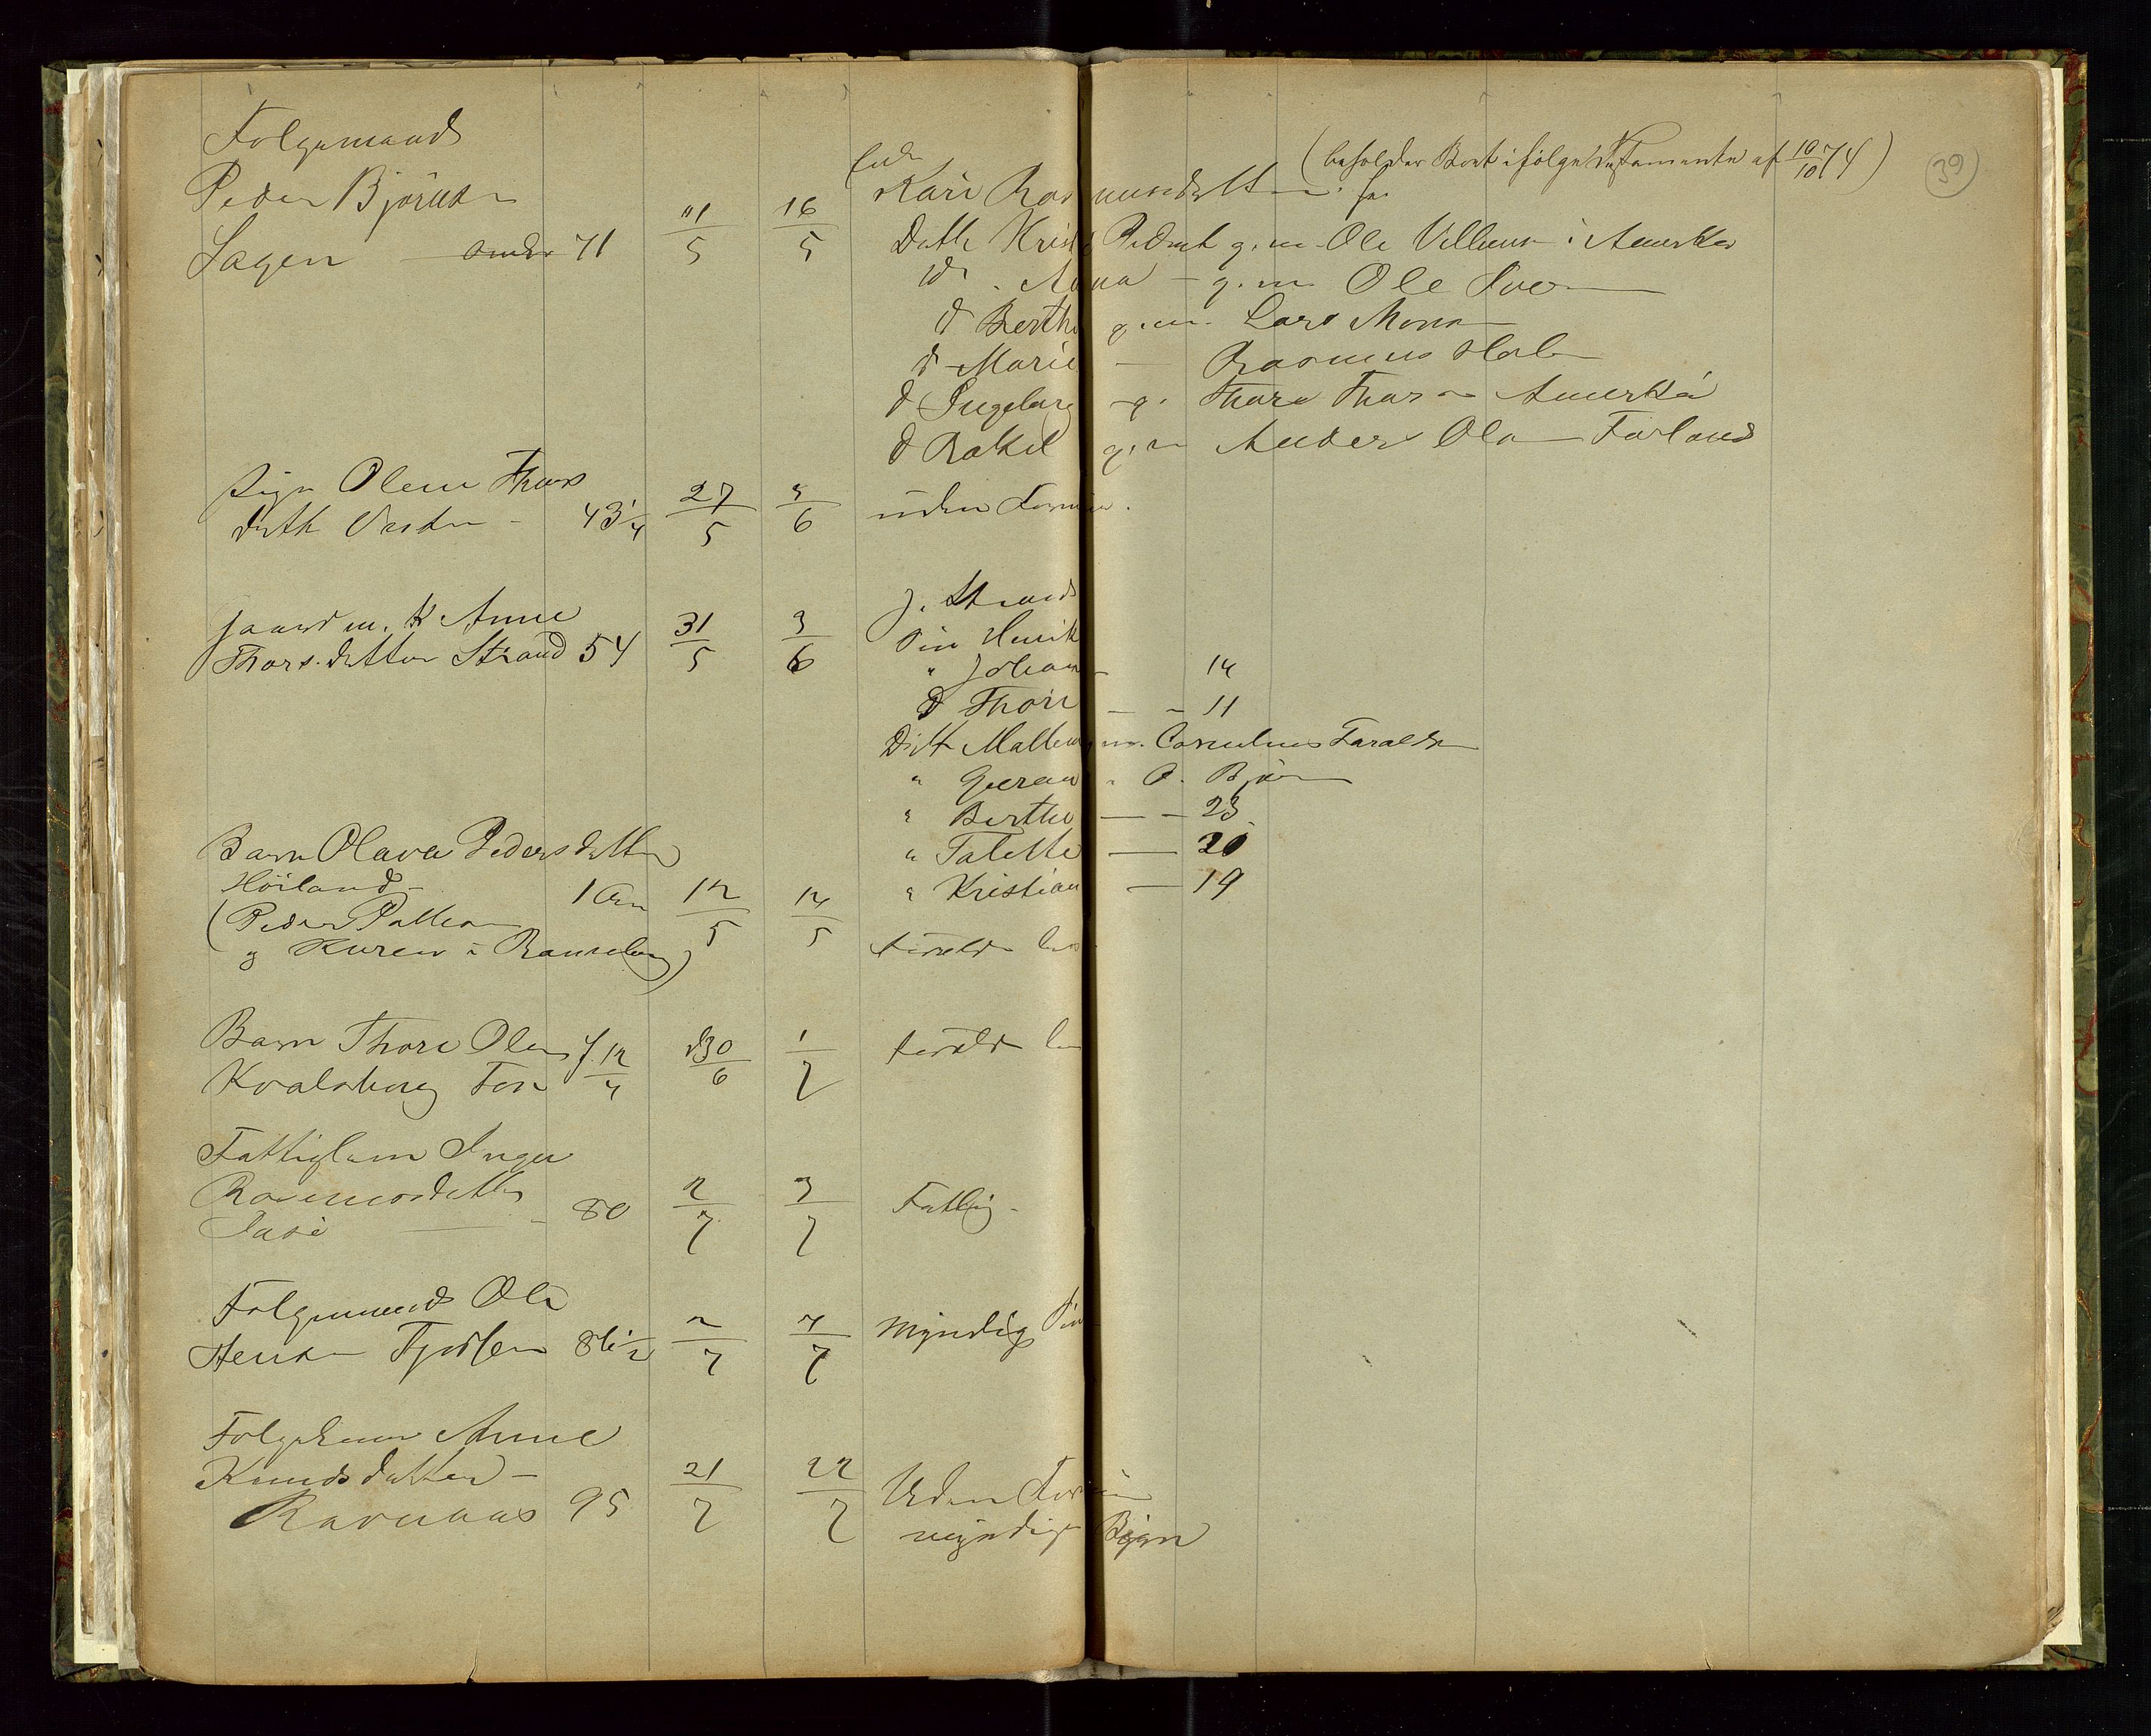 39
Folgemand
Peder Björnsen
Lagen omtr 71 11/5 16/5
Enke
Kari Rasmusdatter.
(beholder Boet ifölge Testamente af 10/10 74)
Datt. Kristi Pedersd. g. m. Ole Villumsen i Amerika
d. Anna - g. m. Ole Iversen
d Berthe g. m. Lars Monsen
d Marie — Rasmus
d Ingeborg - g. Thore Thorsen Amerika
d Rakel g. m Anders Olsen Förland
Pige Olene Thors
datt 43 1/4 27/5 5/6 uden Formue.
Gaardm. K Anne
Thorsdatter Strand 54 31/5 3/6
J. Strand
Sön Henrik
" Johan - 14
d Thore — - 11
Datt Malene g. m. Cornelius Taraldsen
" Gurau " O.
" Berthe — - 23
" Talette — 20
" Kristian — 19
Barn Olava Pedersdatter
Höiland - 1 Aar 12/5 14/5
(Peder Pallesen
og Karen i Ranseberg)
forældre lev
Barn Thore Olsen f. 12/4 d30/6 1/7 forældre lev
Kvalsberg
Fattiglem Inger
Rasmusdatter
80 2/7 3/7 Fattig -
Folgemand Ole
Hensen 86 1/2 2/7 4/7 Myndig Sön
Folgekone Anne
Knudsdatter -
Ravnaas 95 21/7 22/7 Uden Formue
myndige Börn